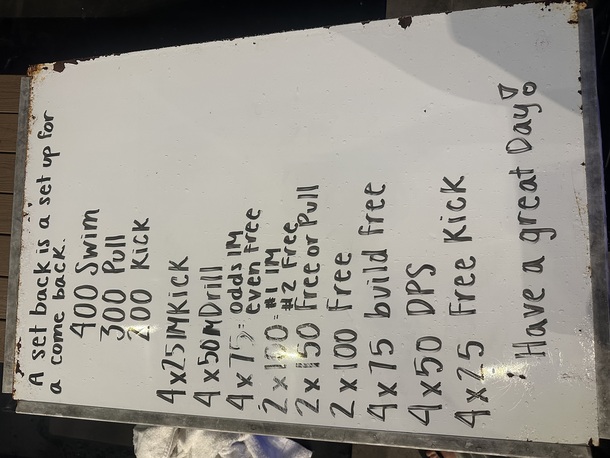 A set back is a set up for
a come back.
400 Swim
300 Pull
200 Kick
4x25 IM Kick
4x50 M Drill
4x75: odds IM
even free
2x100= #1 IM
#2 Free
2x150 Free or Pull
2x100 Free
4x75 build free
4x50 DPS
4x25 Free Kick
! Have a great Day!